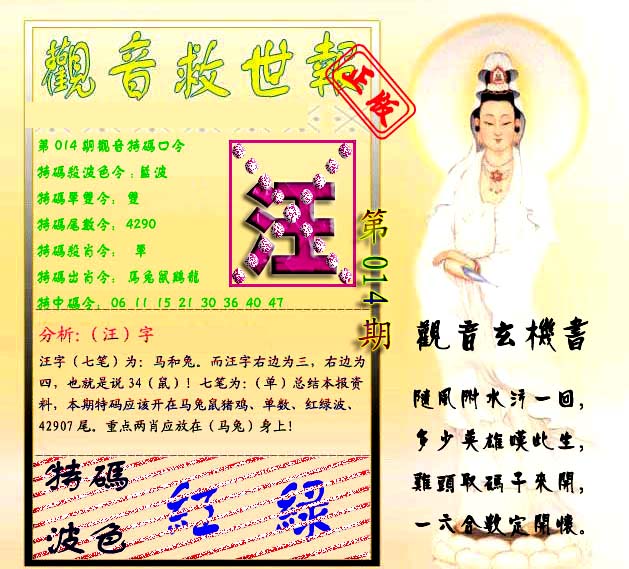 觀音救世報
正版
第014期觀音特碼口令
特碼殺波色令:藍波
特碼單雙令: 雙
特碼尾數令: 4290
特碼殺肖令: 單
特碼出肖令: 馬兔鼠鷄龍
特中碼令: 06 11 15 21 30 36 40 47
汪
第014期
分析:(汪)字
汪字(七笔)为: 马和兔。而汪字右边为三, 右边为
四, 也就是说34(鼠)! 七笔为:(单)总结本报资
料, 本期特码应该开在马兔鼠猪鸡、单数、红绿波、
42907尾。重点两肖应放在(马兔)身上!
特碼
波色
紅 綠
觀音玄機書
隨風附水汙一回,
多少英雄嘆此生,
難頭取碼千來開,
一六合數定開懷。